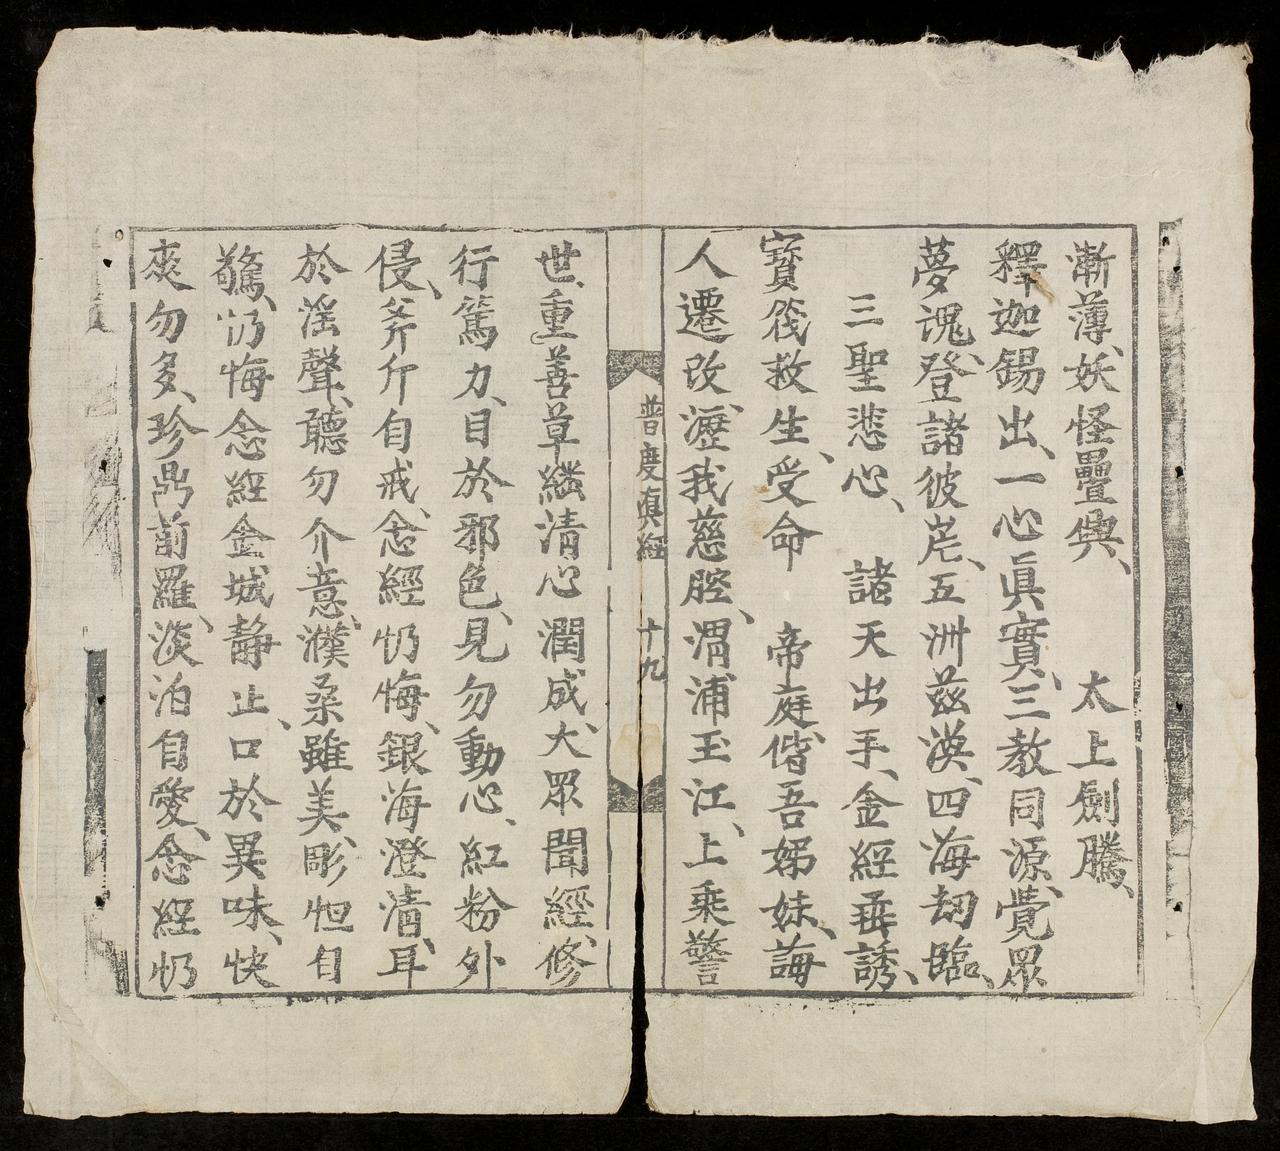 漸薄、妖怪疊興、　太上劍騰、
釋迦錫出、一心眞實、三教同源、覺眾
夢魂、登諸彼岸、五洲茲漠、四海刼臨、
三聖悲心、　諸天出手、金經垂誘、
寳筏救生、受命　帝庭、偕吾娣妹、誨
人遷改、瀝我慈腔、渭浦玉江、上乘警
普度眞經　十九
世、重善草繕清心潤成、大眾聞經、修
行篤力、目於邪色、見勿動心、紅粉外
侵、斧斤自戒、念經忉悔、銀海澄清、耳
於淫聲、聽勿介意、濮桑雖美、彫怛自
驚、忉悔念經金城靜止、口於異味、快
來勿多、珍鼎前羅、淡泊自愛、念經忉